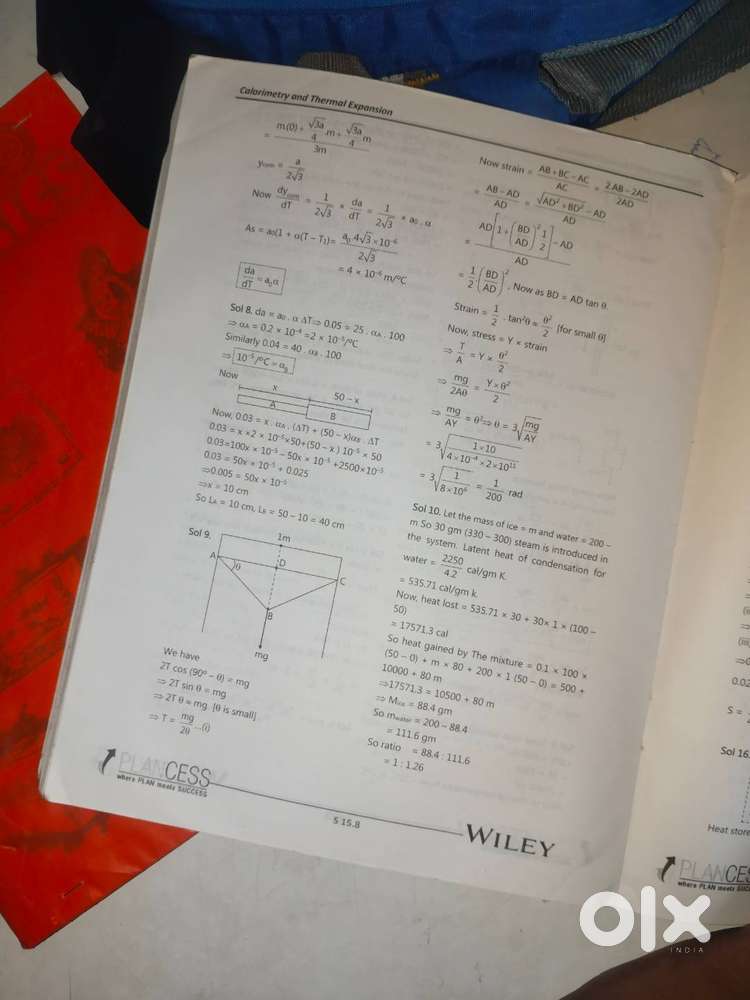 Calorimetry and Thermal Expansion
= m.(0) + √3a/4 .m + √3a/4 m / 3m
y_com = a/2√3
Now dy_com/dT = 1/2√3 × da/dT = 1/2√3 × a₀ . α
As = a₀(1 + α(T – T₁)= a₀ 4√3 × 10⁻⁶ / 2√3
= 4 × 10⁻⁶ m/°C
da/dT = a₀α
Sol 8. da = a₀ . α ΔT⇒ 0.05 = 25 . α_A . 100
⇒ α_A = 0.2 × 10⁻⁴ =2 × 10⁻⁵/°C
Similarly 0.04 = 40 . α_B . 100
⇒ 10⁻⁵/°C = α_B
Now
x 50 – x
A B
Now, 0.03 = x . α_A . (ΔT) + (50 – x)α_B . ΔT
0.03 = x ×2 × 10⁻⁵×50+(50 – x ) 10⁻⁵ × 50
0.03=100x × 10⁻⁵ – 50x × 10⁻⁵ +2500×10⁻⁵
0.03 = 50x × 10⁻⁵ + 0.025
⇒0.005 = 50x × 10⁻⁵
⇒x = 10 cm
So L_A = 10 cm, L_B = 50 – 10 = 40 cm
Sol 9.
1m
A θ D C
B
mg
We have
2T cos (90° – θ) = mg
⇒ 2T sin θ = mg
⇒ 2T θ = mg. [θ is small]
⇒ T = mg/2θ ...(i)
Now strain = AB + BC – AC / AC = 2.AB – 2AD / 2AD
= AB – AD / AD = √AD² + BD² – AD / AD
= AD[1 + (BD/AD)² 1/2] – AD / AD
= 1/2 . (BD/AD)² , Now as BD = AD tan θ.
Strain = 1/2 . tan²θ ≈ θ²/2 [for small θ]
Now, stress = Y × strain
⇒ T/A = Y × θ²/2
⇒ mg/2Aθ = Y × θ²/2
⇒ mg/AY = θ³⇒ θ = 3√mg/AY
= 3√1×10 / 4×10⁻⁴ × 2×10¹¹
= 3√1/8×10⁶ = 1/200 rad
Sol 10. Let the mass of ice = m and water = 200 –
m So 30 gm (330 – 300) steam is introduced in
the system. Latent heat of condensation for
water = 2250/4.2 cal/gm K.
= 535.71 cal/gm k.
Now, heat lost = 535.71 × 30 + 30× 1 × (100 –
50)
= 17571.3 cal
So heat gained by The mixture = 0.1 × 100 ×
(50 – 0) + m × 80 + 200 × 1 (50 – 0) = 500 +
10000 + 80 m
⇒17571.3 = 10500 + 80 m
⇒ M_ice = 88.4 gm
So m_water = 200 – 88.4
= 111.6 gm
So ratio = 88.4 : 111.6
= 1 : 1.26
PLANCESS
where PLAN meets SUCCESS
S 15.8
WILEY
0.02
S =
Sol 16.
Heat store
PLANCES
where PLAN meets SUC
olx
INDIA